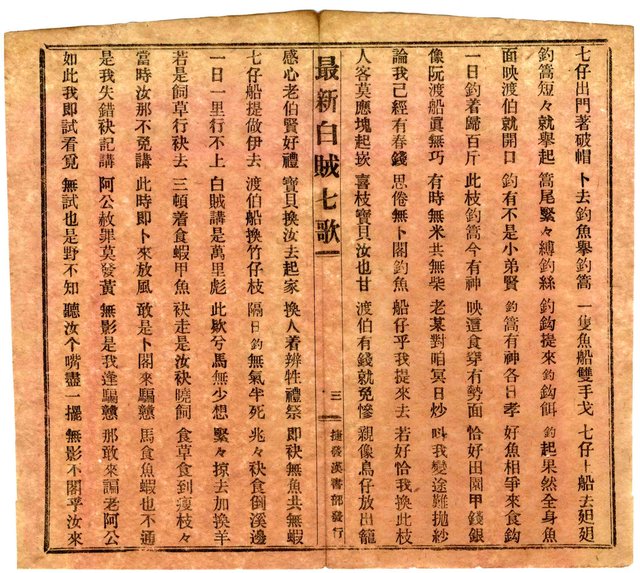 七仔出門著破帽　卜去釣魚舉釣篙　一隻魚船雙手戈　七仔上船去𨑨𨑨
釣篙短々就舉起　篙尾緊々縛釣絲　釣鈎提來釣鈎餌　釣起果然全身魚
面映渡伯就開口　釣有不是小弟賢　釣篙有神各日孝　好魚相爭來食鈎
一日釣着歸百斤　此枝釣篙今有神　映還食穿有勢面　恰好出園甲錢銀
像阮渡船眞無巧　有時無米共無柴　老某對咱冥日炒　呌我變途難拋紗
論我己經有春錢　思倦無卜閣釣魚　船仔乎我提來去　若好恰我換此枝
人客莫應塊起崁　喜枝寶貝汝也甘　渡伯有錢就免慘　親像鳥仔放出籠
最新白賊七歌
三
捷發漢書部發行
感心老伯賢好禮　寶貝換汝去起家　換人着辨牲禮祭　即袂無魚共無蝦
七仔船提做伊去　渡伯船換竹仔枝　隔日釣無氣半死　兆々袂食倒溪邊
一日一里行不上　白賊講是萬里彪　此欵兮馬無少想　緊々掠去加換羊
若是飼草行袂去　三頓着食蝦甲魚　袂走是汝袂曉飼　食草食到瘦枝々
當時汝那不免講　此時即卜來放風　敢是卜閣來騙戇　馬食魚蝦也不通
是我失錯袂記講　阿公赦罪莫發黃　無影是我逢騙戇　那敢來謳老阿公
如此我即試看覓　無試也是野不知　聽汝个嘴盡一擺　無影不閣乎汝來